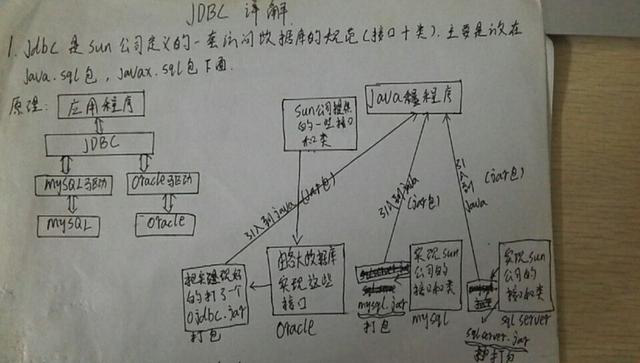 JDBC 详解
1. Jdbc 是 Sun 公司定义的一套访问数据库的规范(接口+类). 主要是放在
java.sql包, javax.sql包下面.
原理:
应用程序
JDBC
mySQL驱动
Oracle驱动
mySQL
Oracle
Sun公司提供
的一些接口
和类
Java程序
引入到java (jar包)
引入到java
(jar包)
引入到
Java
(jar包)
把实现好
的打了一个
Ojdbc.jar
打包
由各大数据库
实现这些
接口
Oracle
mysql.jar
打包
实现sun
公司的
接口和类
mysql
实现sun
公司的
接口和类
sql server
sqlserver.jar
打包